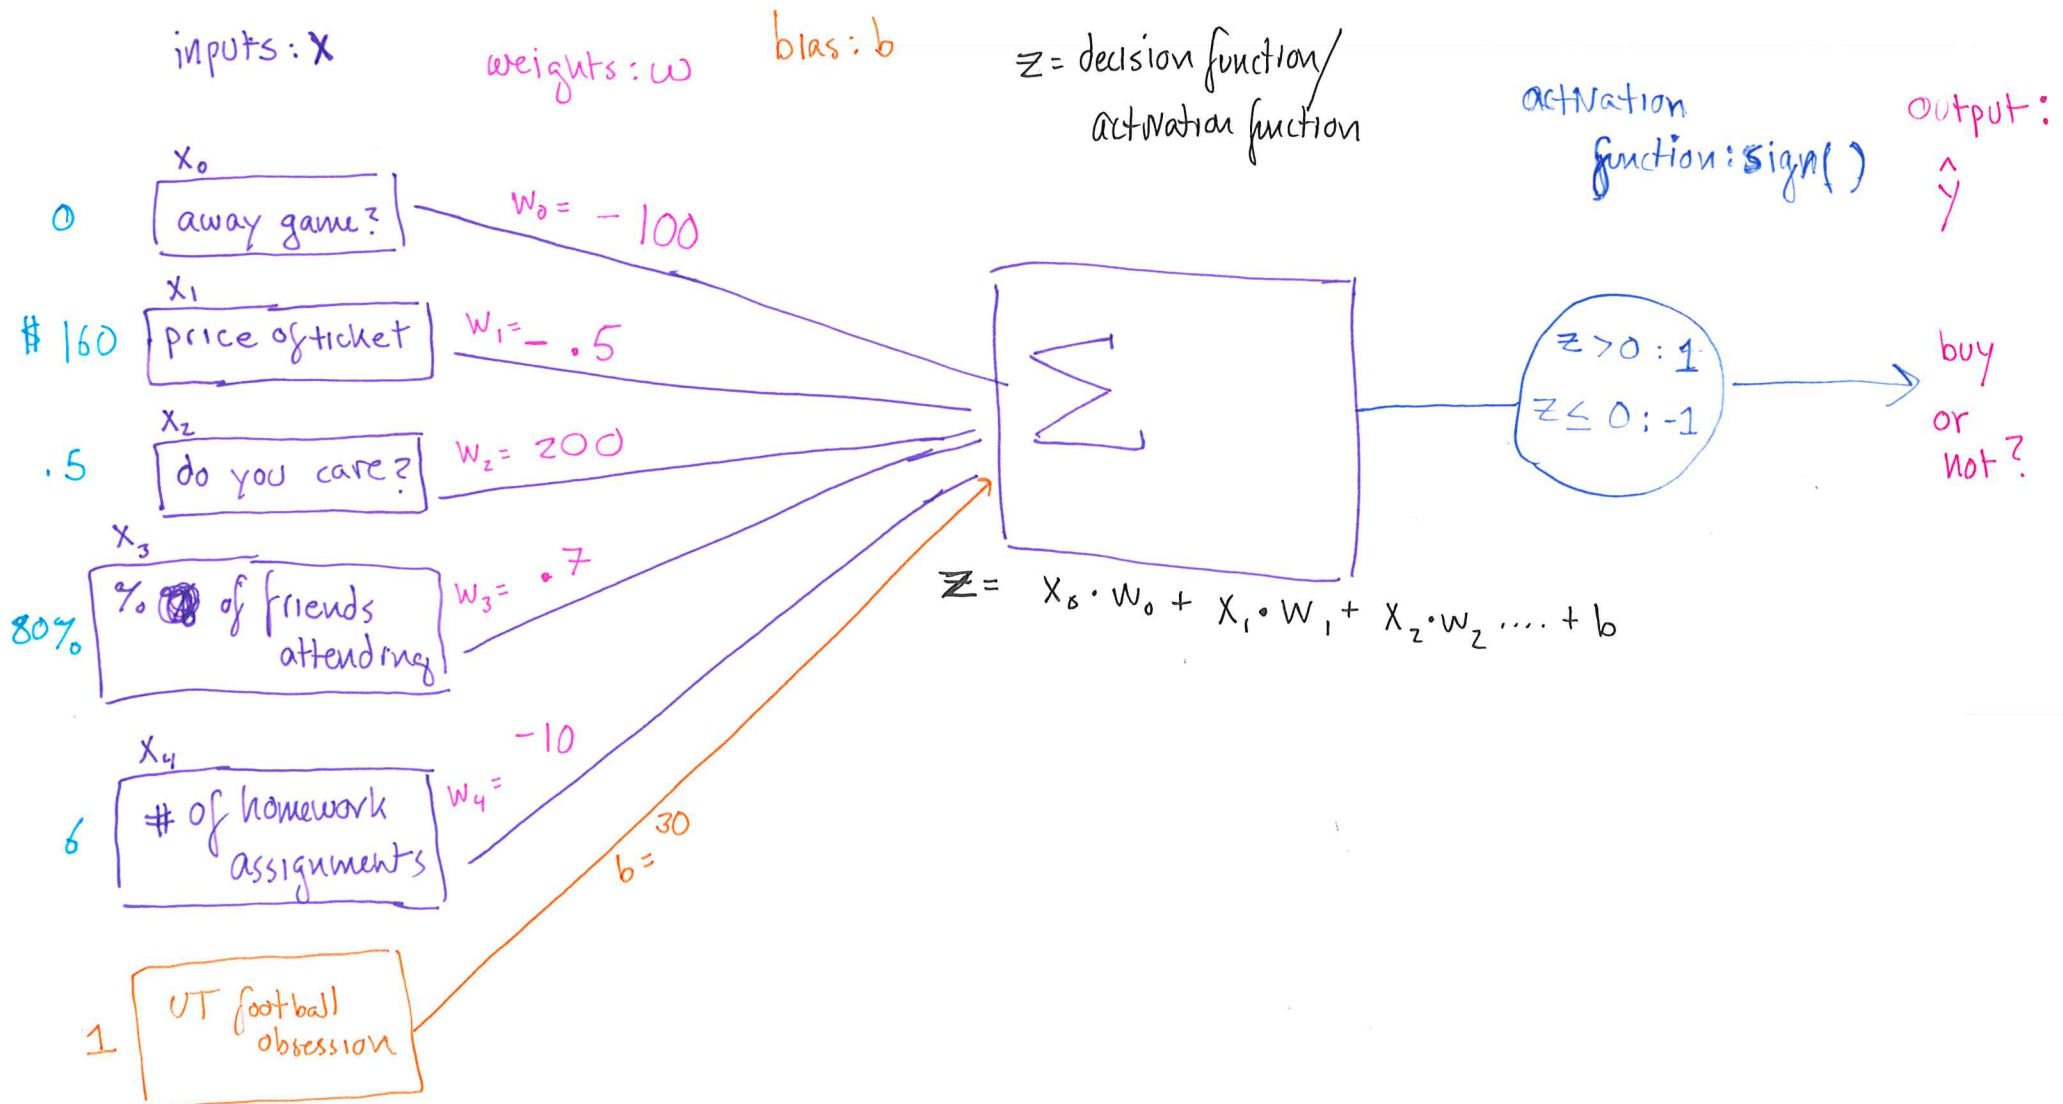 inputs: X
weights: w
bias: b
z = decision function/
activation function
activation
function: sign()
output:
ŷ
X₀
0
away game?
W₀ = - 100
X₁
$ 160
price of ticket
W₁ = - .5
X₂
.5
do you care?
W₂ = 200
X₃
80%
% of friends
attending
W₃ = .7
X₄
6
# of homework
assignments
W₄ = -10
1
UT football
obsession
b = 30
Σ
z = X₀ · W₀ + X₁ · W₁ + X₂ · W₂ .... + b
z > 0 : 1
z ≤ 0 : -1
buy
or
not?